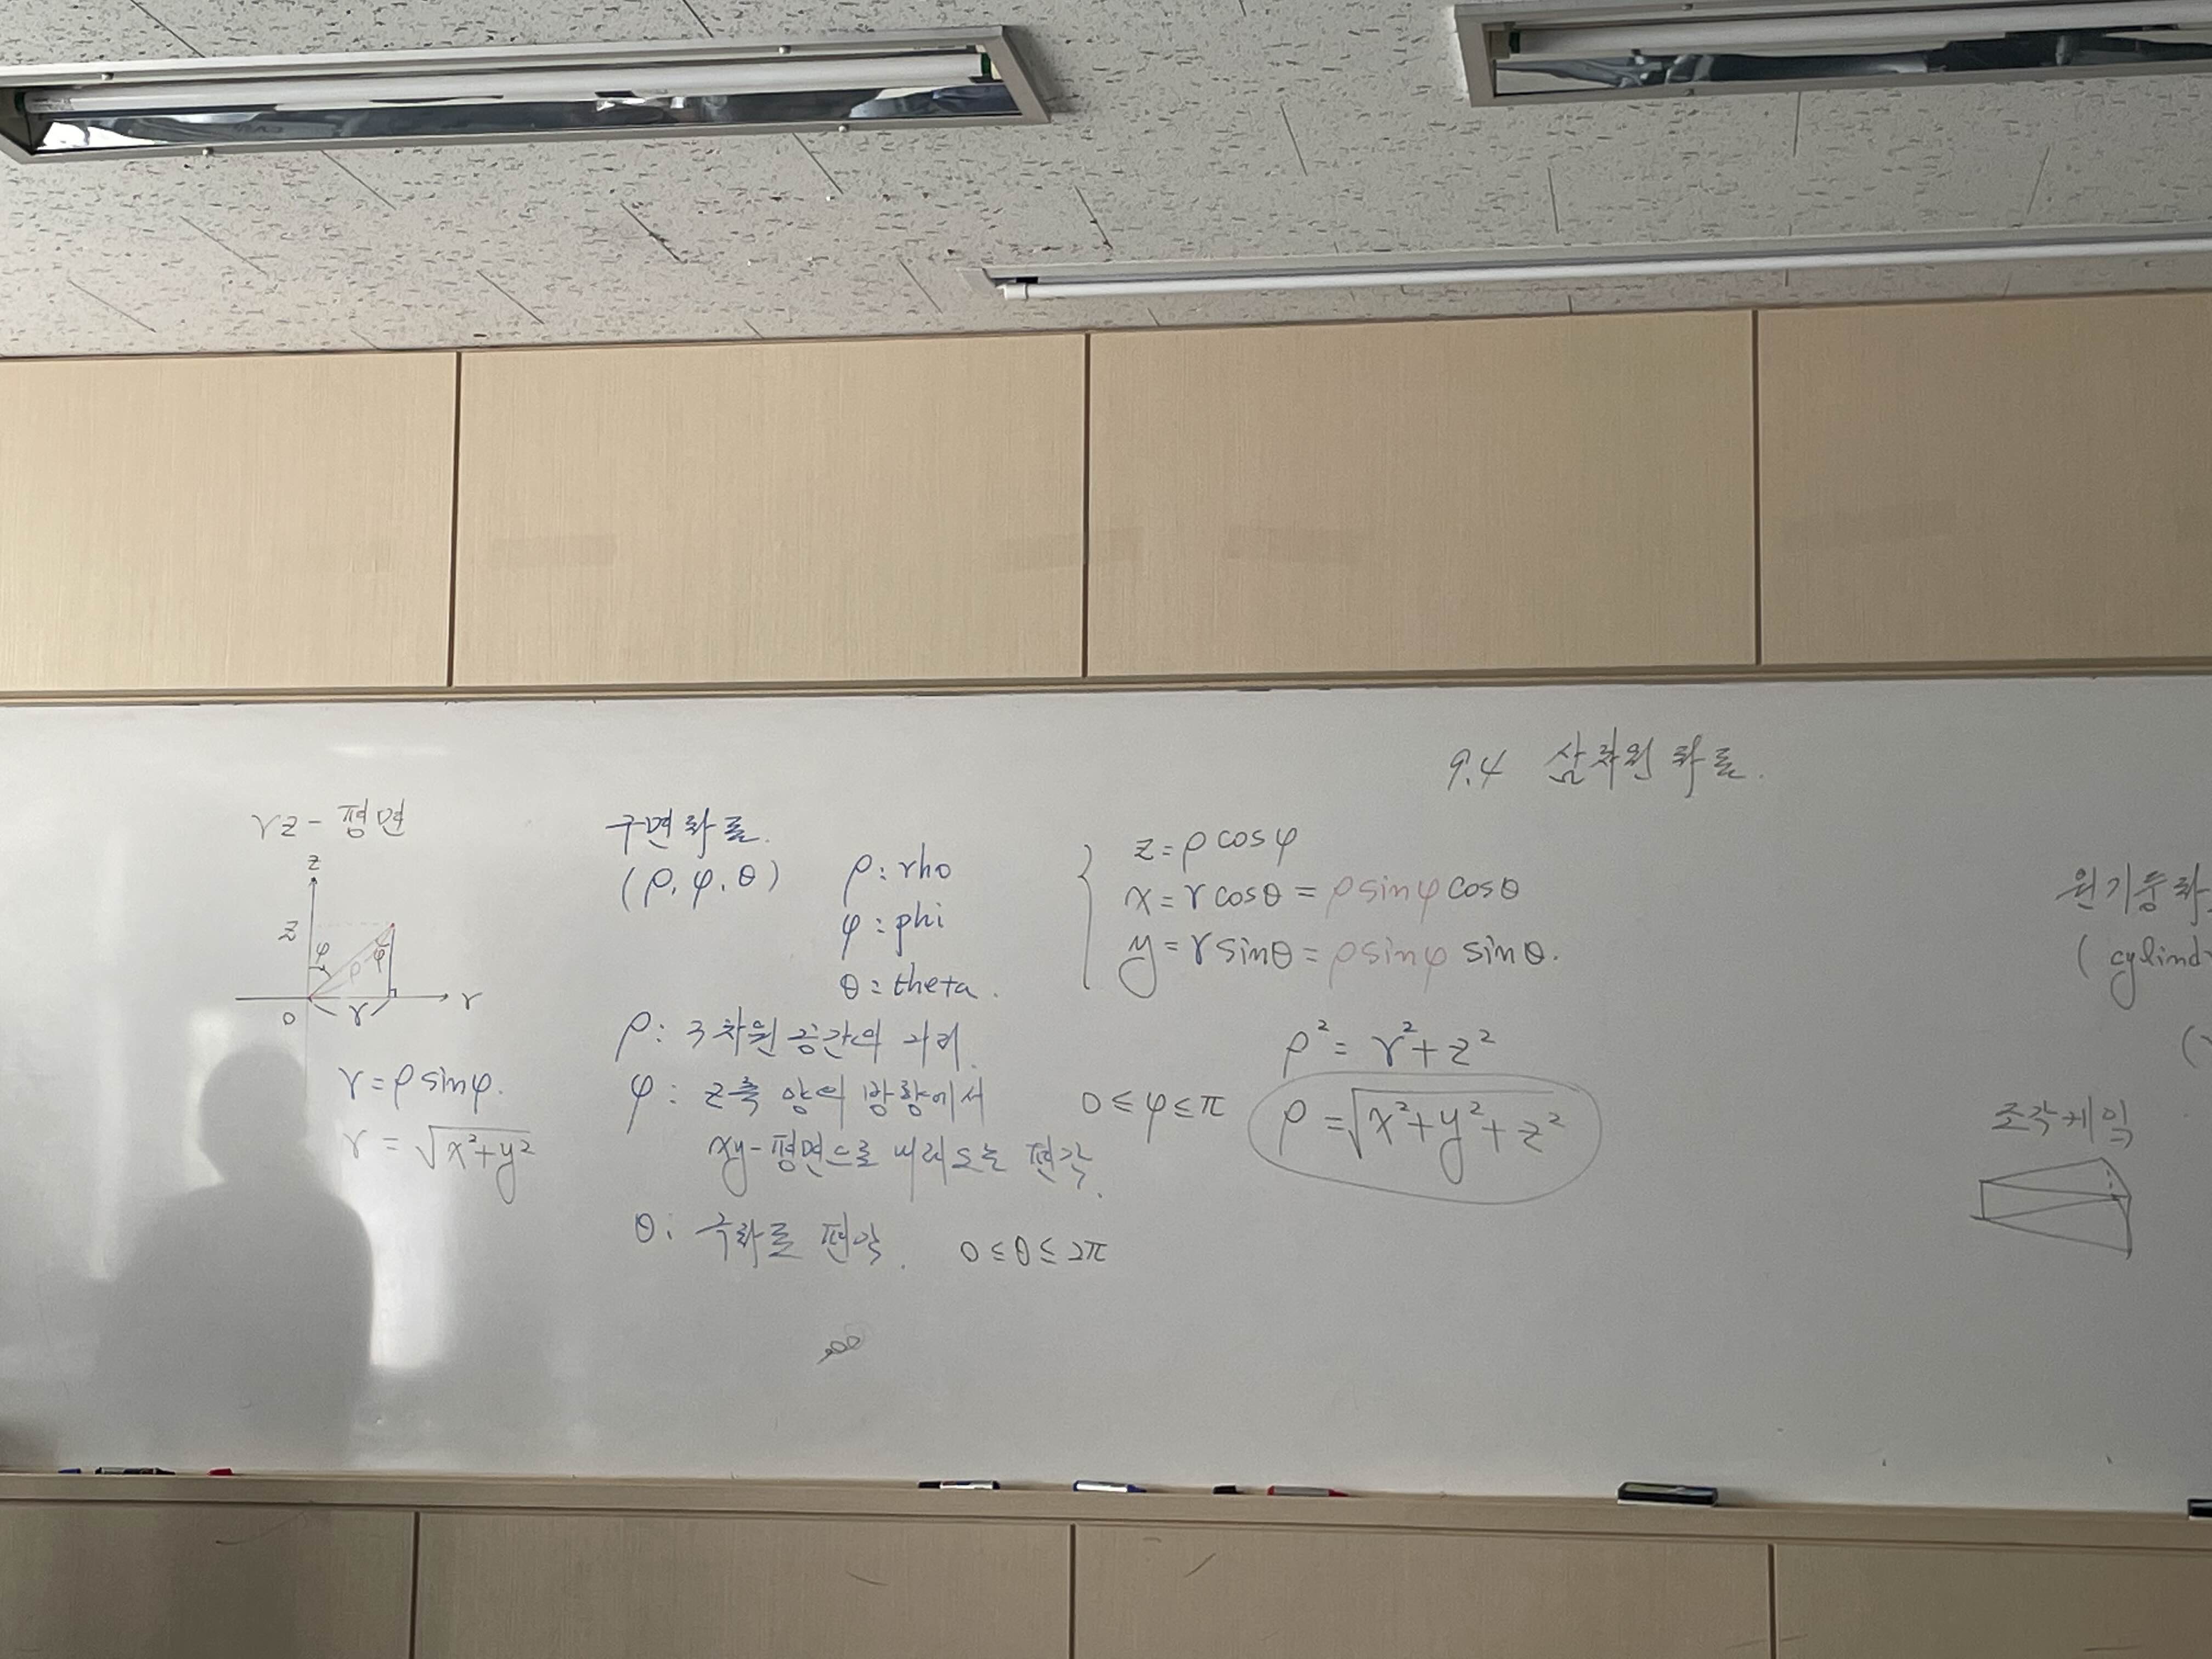 9.4 삼차원 좌표.
rz-평면
z
z
φ
φ
ρ
r
0
r
r = ρ sinφ.
r = √x²+y²
구면좌표.
(ρ, φ, θ)
ρ: rho
φ: phi
θ: theta.
ρ: 3차원 공간의 거리.
φ: z축 양의 방향에서
xy-평면으로 내려오는 편각.
0 ≤ φ ≤ π
θ: 극좌표 편각. 0 ≤ θ ≤ 2π
z = ρ cosφ
x = r cosθ = ρ sinφ cosθ
y = r sinθ = ρ sinφ sinθ.
ρ² = r² + z²
ρ = √x²+y²+z²
원기둥좌
( cylind
(
조각케익